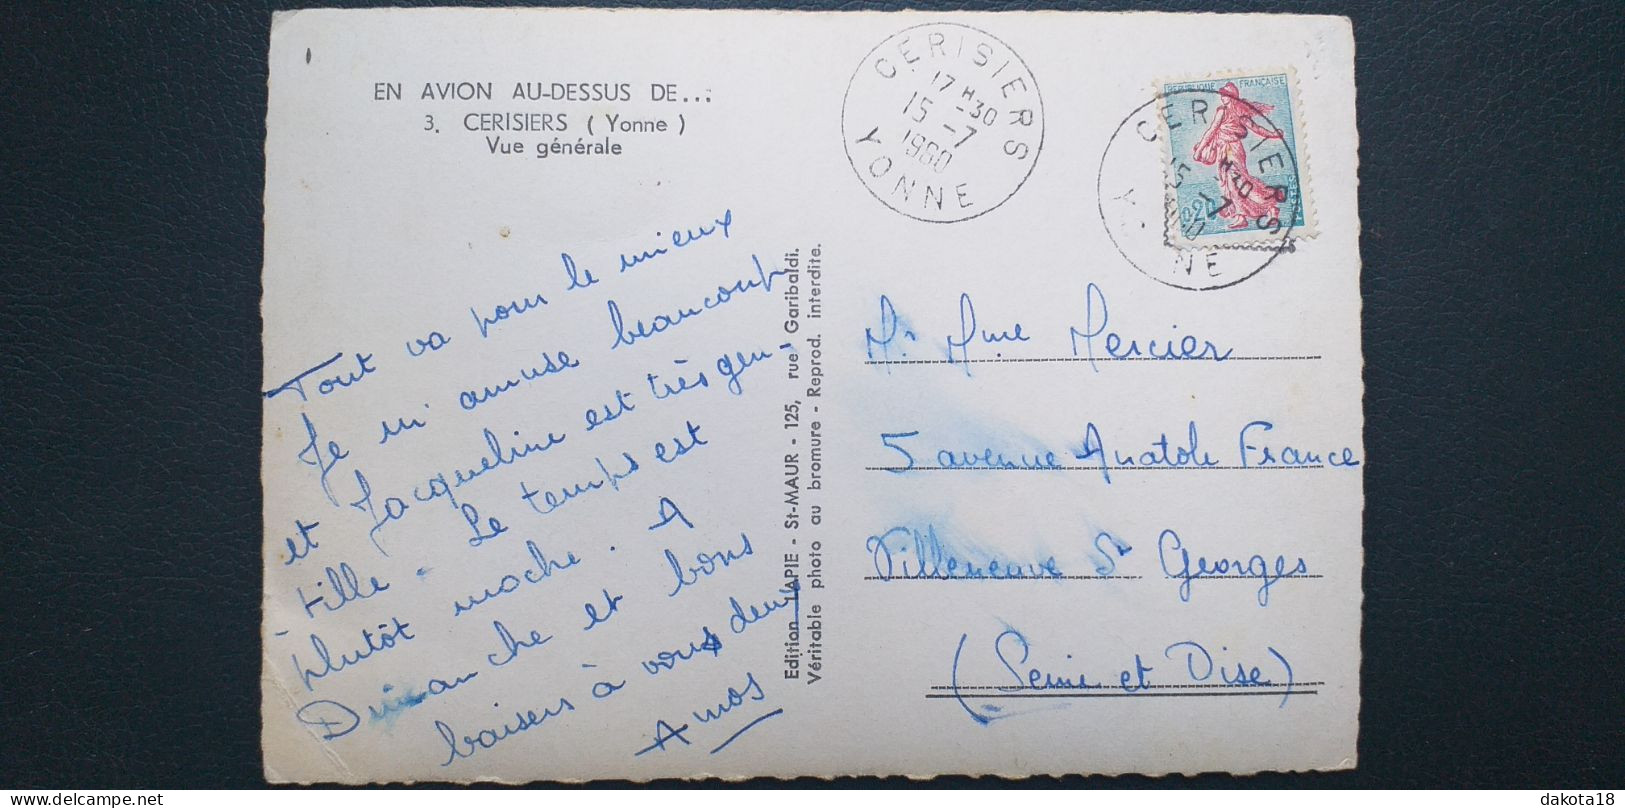 EN AVION AU-DESSUS DE...
3. CERISIERS ( Yonne )
Vue générale
CERISIERS
17 H30
15 -7
1960
YONNE
REPUBLIQUE FRANÇAISE
0,20
POSTES
CERISIERS
15 -7
H30
YONNE
Tout va pour le mieux
Je m'amuse beaucoup
et Jacqueline est très gen-
-tille. Le temps est
plutôt moche. A
Dimanche et bons
baisers à vous deux
Amos
Edition LAPIE - St-MAUR - 125, rue Garibaldi.
Véritable photo au bromure - Reprod. interdite.
Mr Mme Mercier
5 avenue Anatole France
Villeneuve St Georges
(Seine et Oise)
dakota18